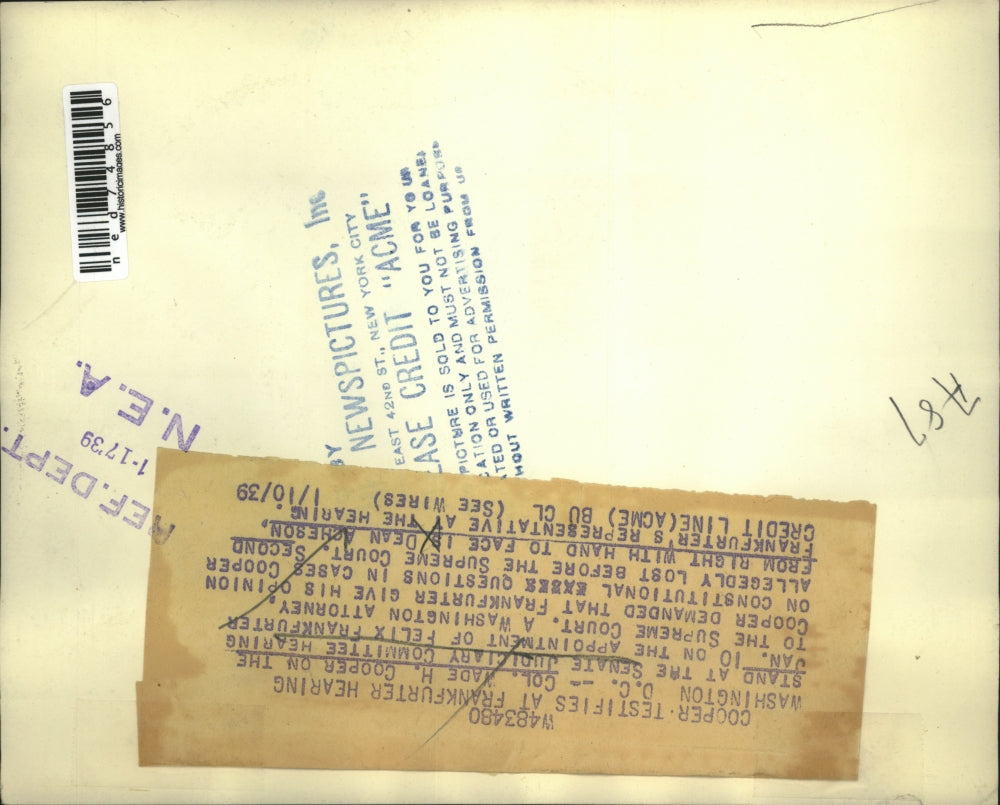 W483480
COOPER TESTIFIES AT FRANKFURTER HEARING
WASHINGTON D.C. -- COL. WADE H. COOPER ON THE
STAND AT THE SENATE JUDICIARY COMMITTEE HEARING
JAN. 10 ON THE APPOINTMENT OF FELIX FRANKFURTER
TO THE SUPREME COURT. A WASHINGTON ATTORNEY,
COOPER DEMANDED THAT FRANKFURTER GIVE HIS OPINION
ON CONSTITUTIONAL QUESTIONS IN CASES COOPER
ALLEGEDLY LOST BEFORE THE SUPREME COURT. SECOND
FROM RIGHT WITH HAND TO FACE IS DEAN ACHESON,
FRANKFURTER'S REPRESENTATIVE AT THE HEARING.
CREDIT LINE(ACME) BU CL (SEE WIRES) 1/10/39
BY
NEWSPICTURES, Inc
EAST 42ND ST., NEW YORK CITY
ASE CREDIT "ACME"
PICTURE IS SOLD TO YOU FOR YO UR
CATION ONLY AND MUST NOT BE LOANED
TED OR USED FOR ADVERTISING PURPOSE
HOUT WRITTEN PERMISSION FROM US
REF. DEPT.
1-17'39
N.E.A.
ned74856
www.historicimages.com